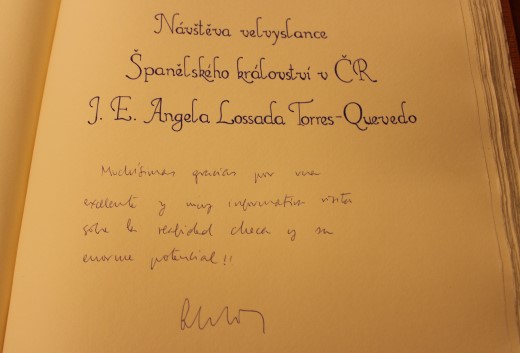 Návštěva velvyslance
Španělského království v ČR
J. E. Angela Lossada Torres-Quevedo
Muchísimas gracias por una
excelente y muy informativa visita
sobre la realidad checa y su
enorme potencial!!